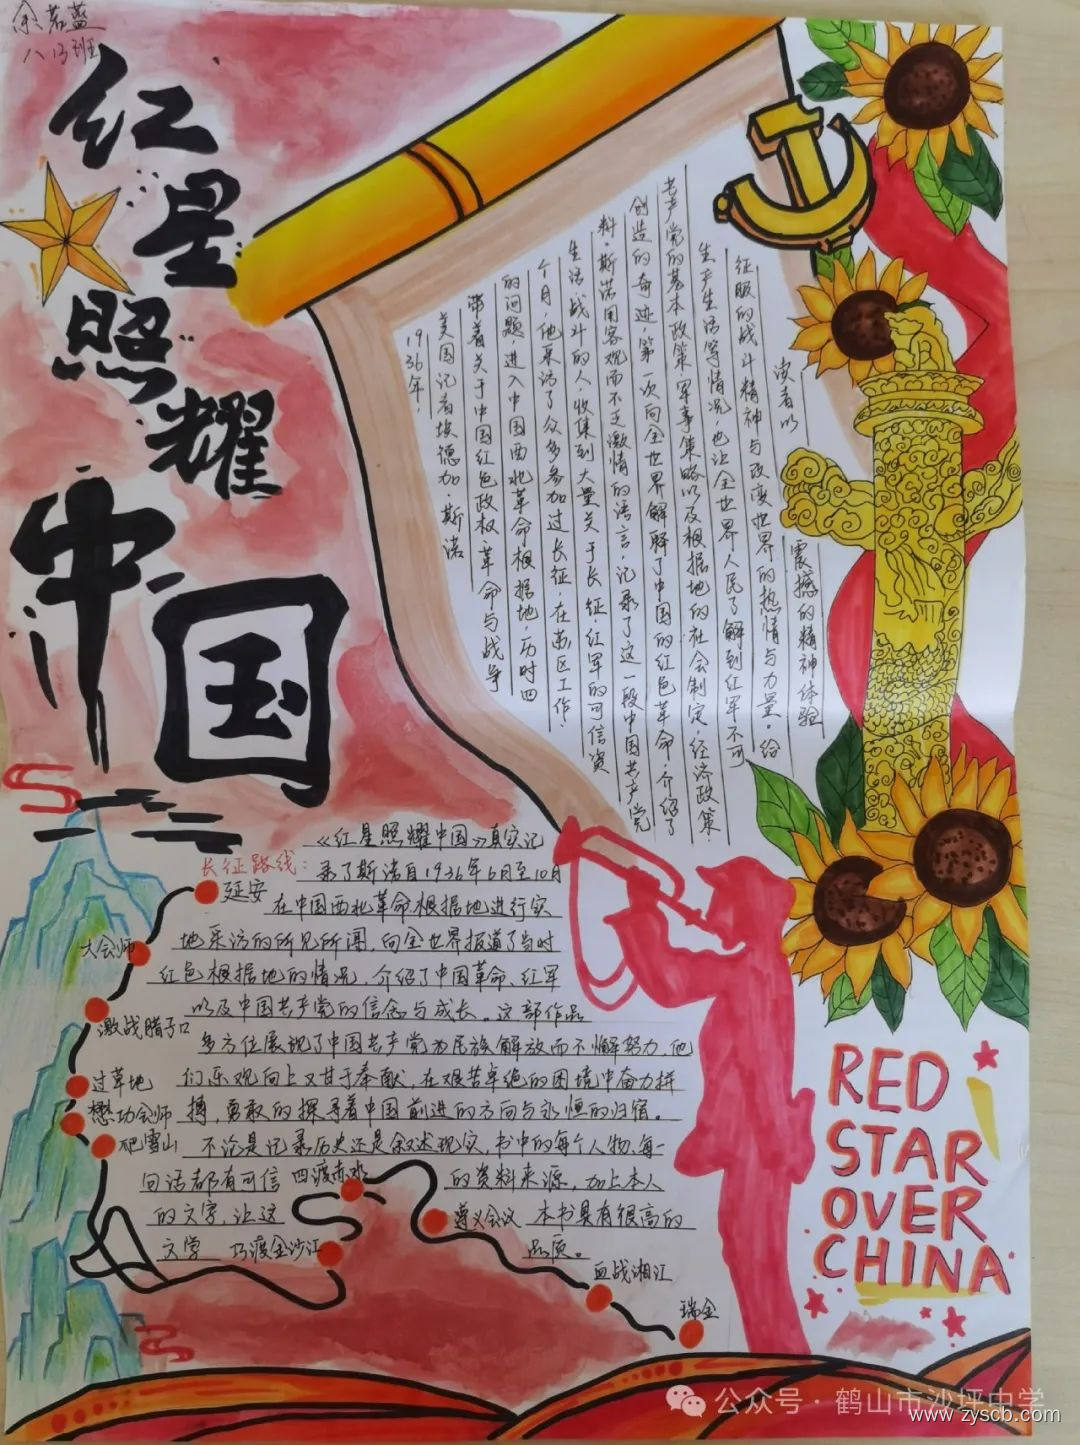 余若蓝
八13班
红星照耀中国
1936年，
美国记者埃德加·斯诺
带着关于中国红色政权、革命与战争
的问题，进入中国西北革命根据地，历时四
个月，他采访了众多参加过长征、在苏区工作、
生活、战斗的人，收集到大量关于长征、红军的可信资
料。斯诺用客观而不乏激情的语言，记录了这一段中国共产党
创造的奇迹，第一次向全世界解释了中国的红色革命，介绍了
共产党的基本政策、军事策略以及根据地的社会制定、经济政策、
生产生活等情况，也让全世界人民了解到红军不可
征服的战斗精神与改变世界的热情与力量，给
读者以 震撼的精神体验
《红星照耀中国》真实记
长征路线：
录了斯诺自1936年6月至10月
延安
在中国西北革命根据地进行实
大会师
地采访的所见所闻，向全世界报道了当时
红色根据地的情况，介绍了中国革命、红军
以及中国共产党的信念与成长。这部作品
激战腊子口
多方位展现了中国共产党为民族解放而不懈努力，他
过草地
们乐观向上又甘于奉献，在艰苦卓绝的困境中奋力拼
懋功会师
搏，勇敢的探寻着中国前进的方向与永恒的归宿。
爬雪山
不论是记录历史还是叙述现实，书中的每个人物、每一
句话都有可信
四渡赤水
的资料来源，加上本人
的文字，让这
遵义会议
本书具有很高的
文学
巧渡金沙江
品质。
血战湘江
瑞金
RED
STAR
OVER
CHINA
公众号·鹤山市沙坪中学
www.zyscb.com